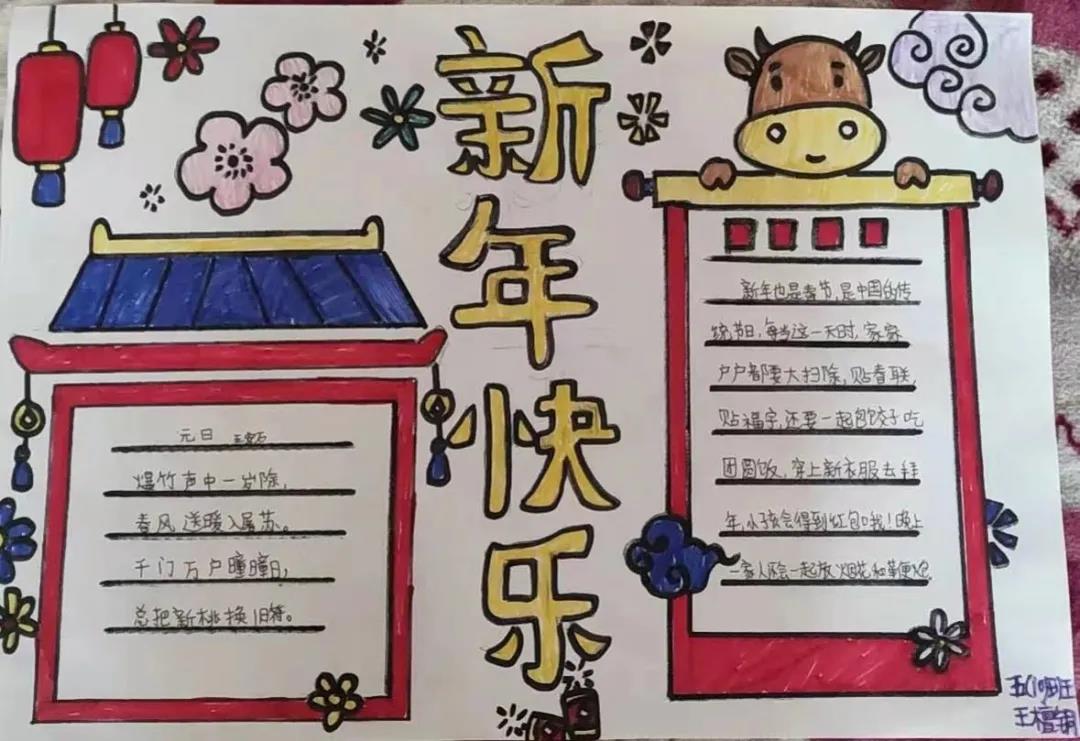 新年快乐
元日 王安石
爆竹声中一岁除,
春风送暖入屠苏。
千门万户曈曈日,
总把新桃换旧符。
新年也是春节,是中国的传
统节日,每当这一天时,家家
户户都要大扫除,贴春联
贴福字,还要一起包饺子吃
团圆饭,穿上新衣服去拜
年,小孩会得到红包哦!晚上
一家人还会一起放烟花和鞭炮。
五(1)班
王檀